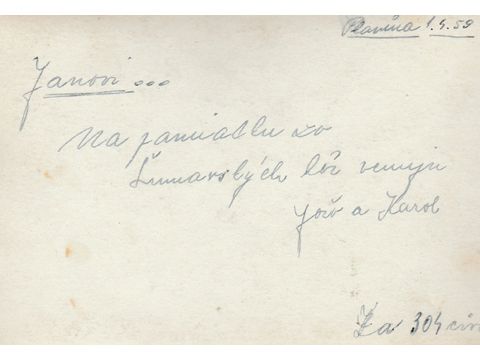 Planina 1.4.59
Janovi ...
Na pamiatku zo
Šumavských hôr venuju
Jožo a Karol
Za 304